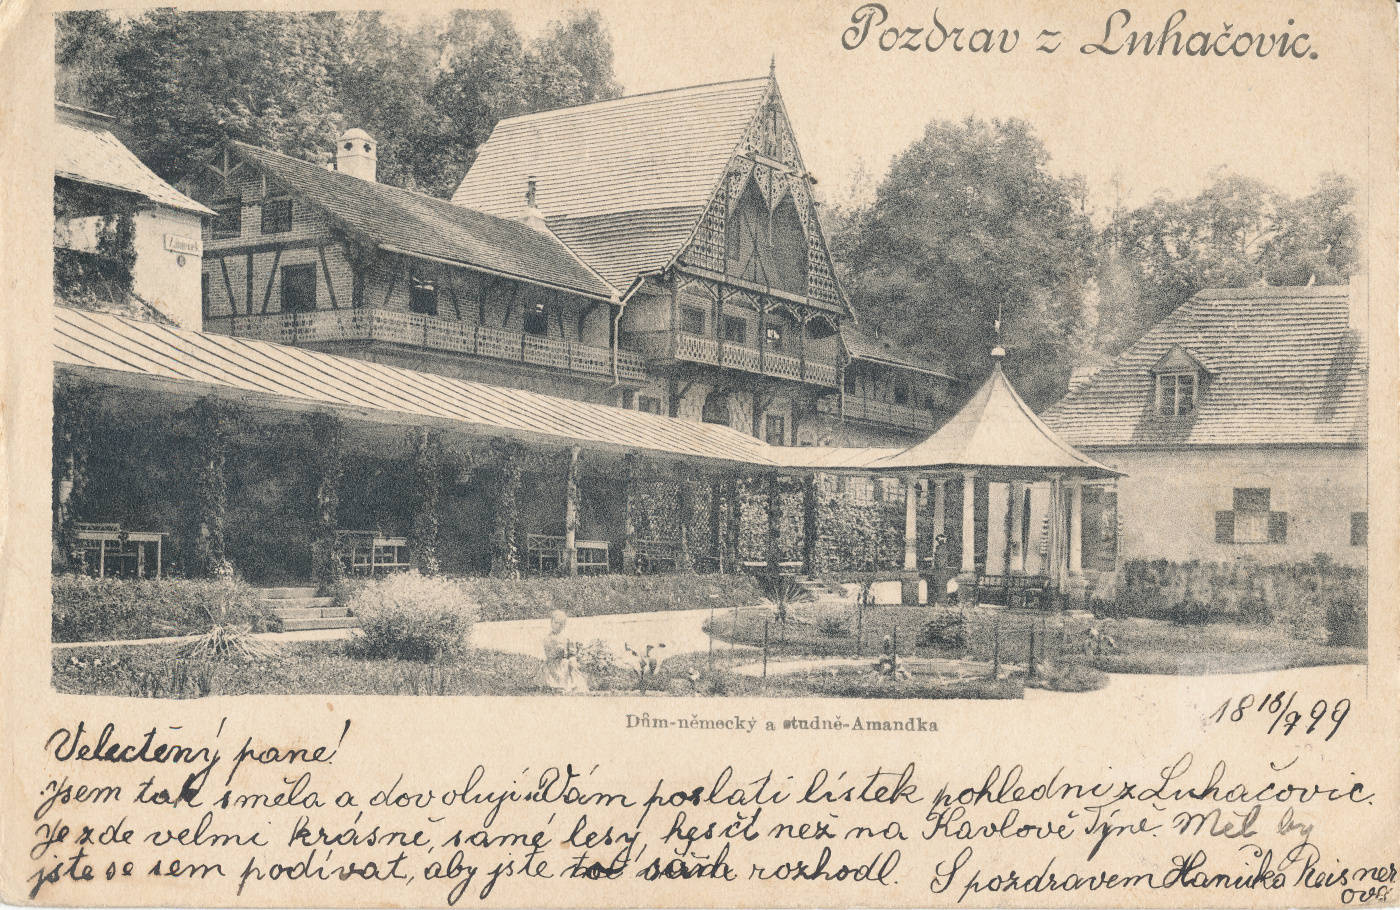 Pozdrav z Luhačovic.
Dům-německý a studně-Amandka
18 18/7 99
Velectěný pane!
Jsem tak směla a dovoluji si Vám poslati lístek pohlední z Luhačovic.
Je zde velmi krásně, samé lesy, hesčí než na Kavlově Týně. Měl by
jste se sem podívat, aby jste to rozhodl. S pozdravem Hanička Reisner
ová